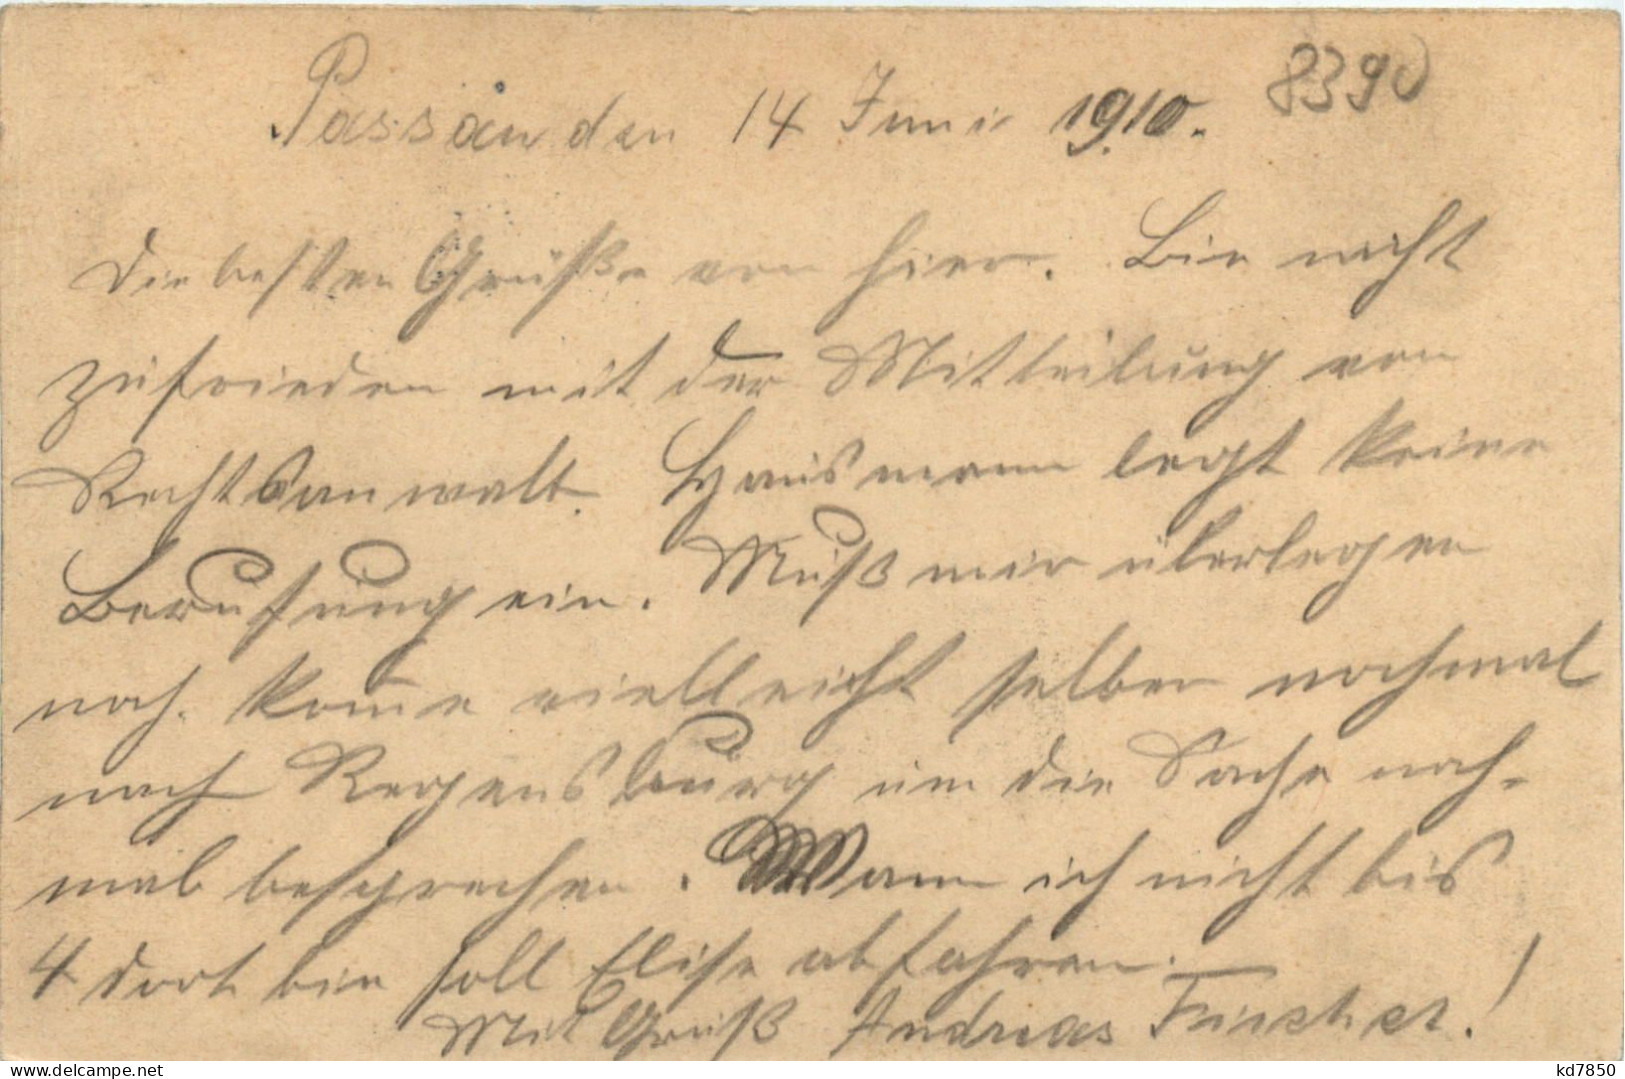 Passau den 14 Juni 1910.
8390
Die besten Grüße von hier. Bin nicht
zufrieden mit der Mitteilung von
Rechtsanwalt. Hausmann legt keine
Berufung ein. Muß mir überlegen
noch. Kom̄e vielleicht selber nochmal
nach Regensburg um die Sache noch-
mal besprechen. Wann ich nicht bis
4 dort bin soll Elise abfahren.
Mit Gruß Andreas !
kd7850